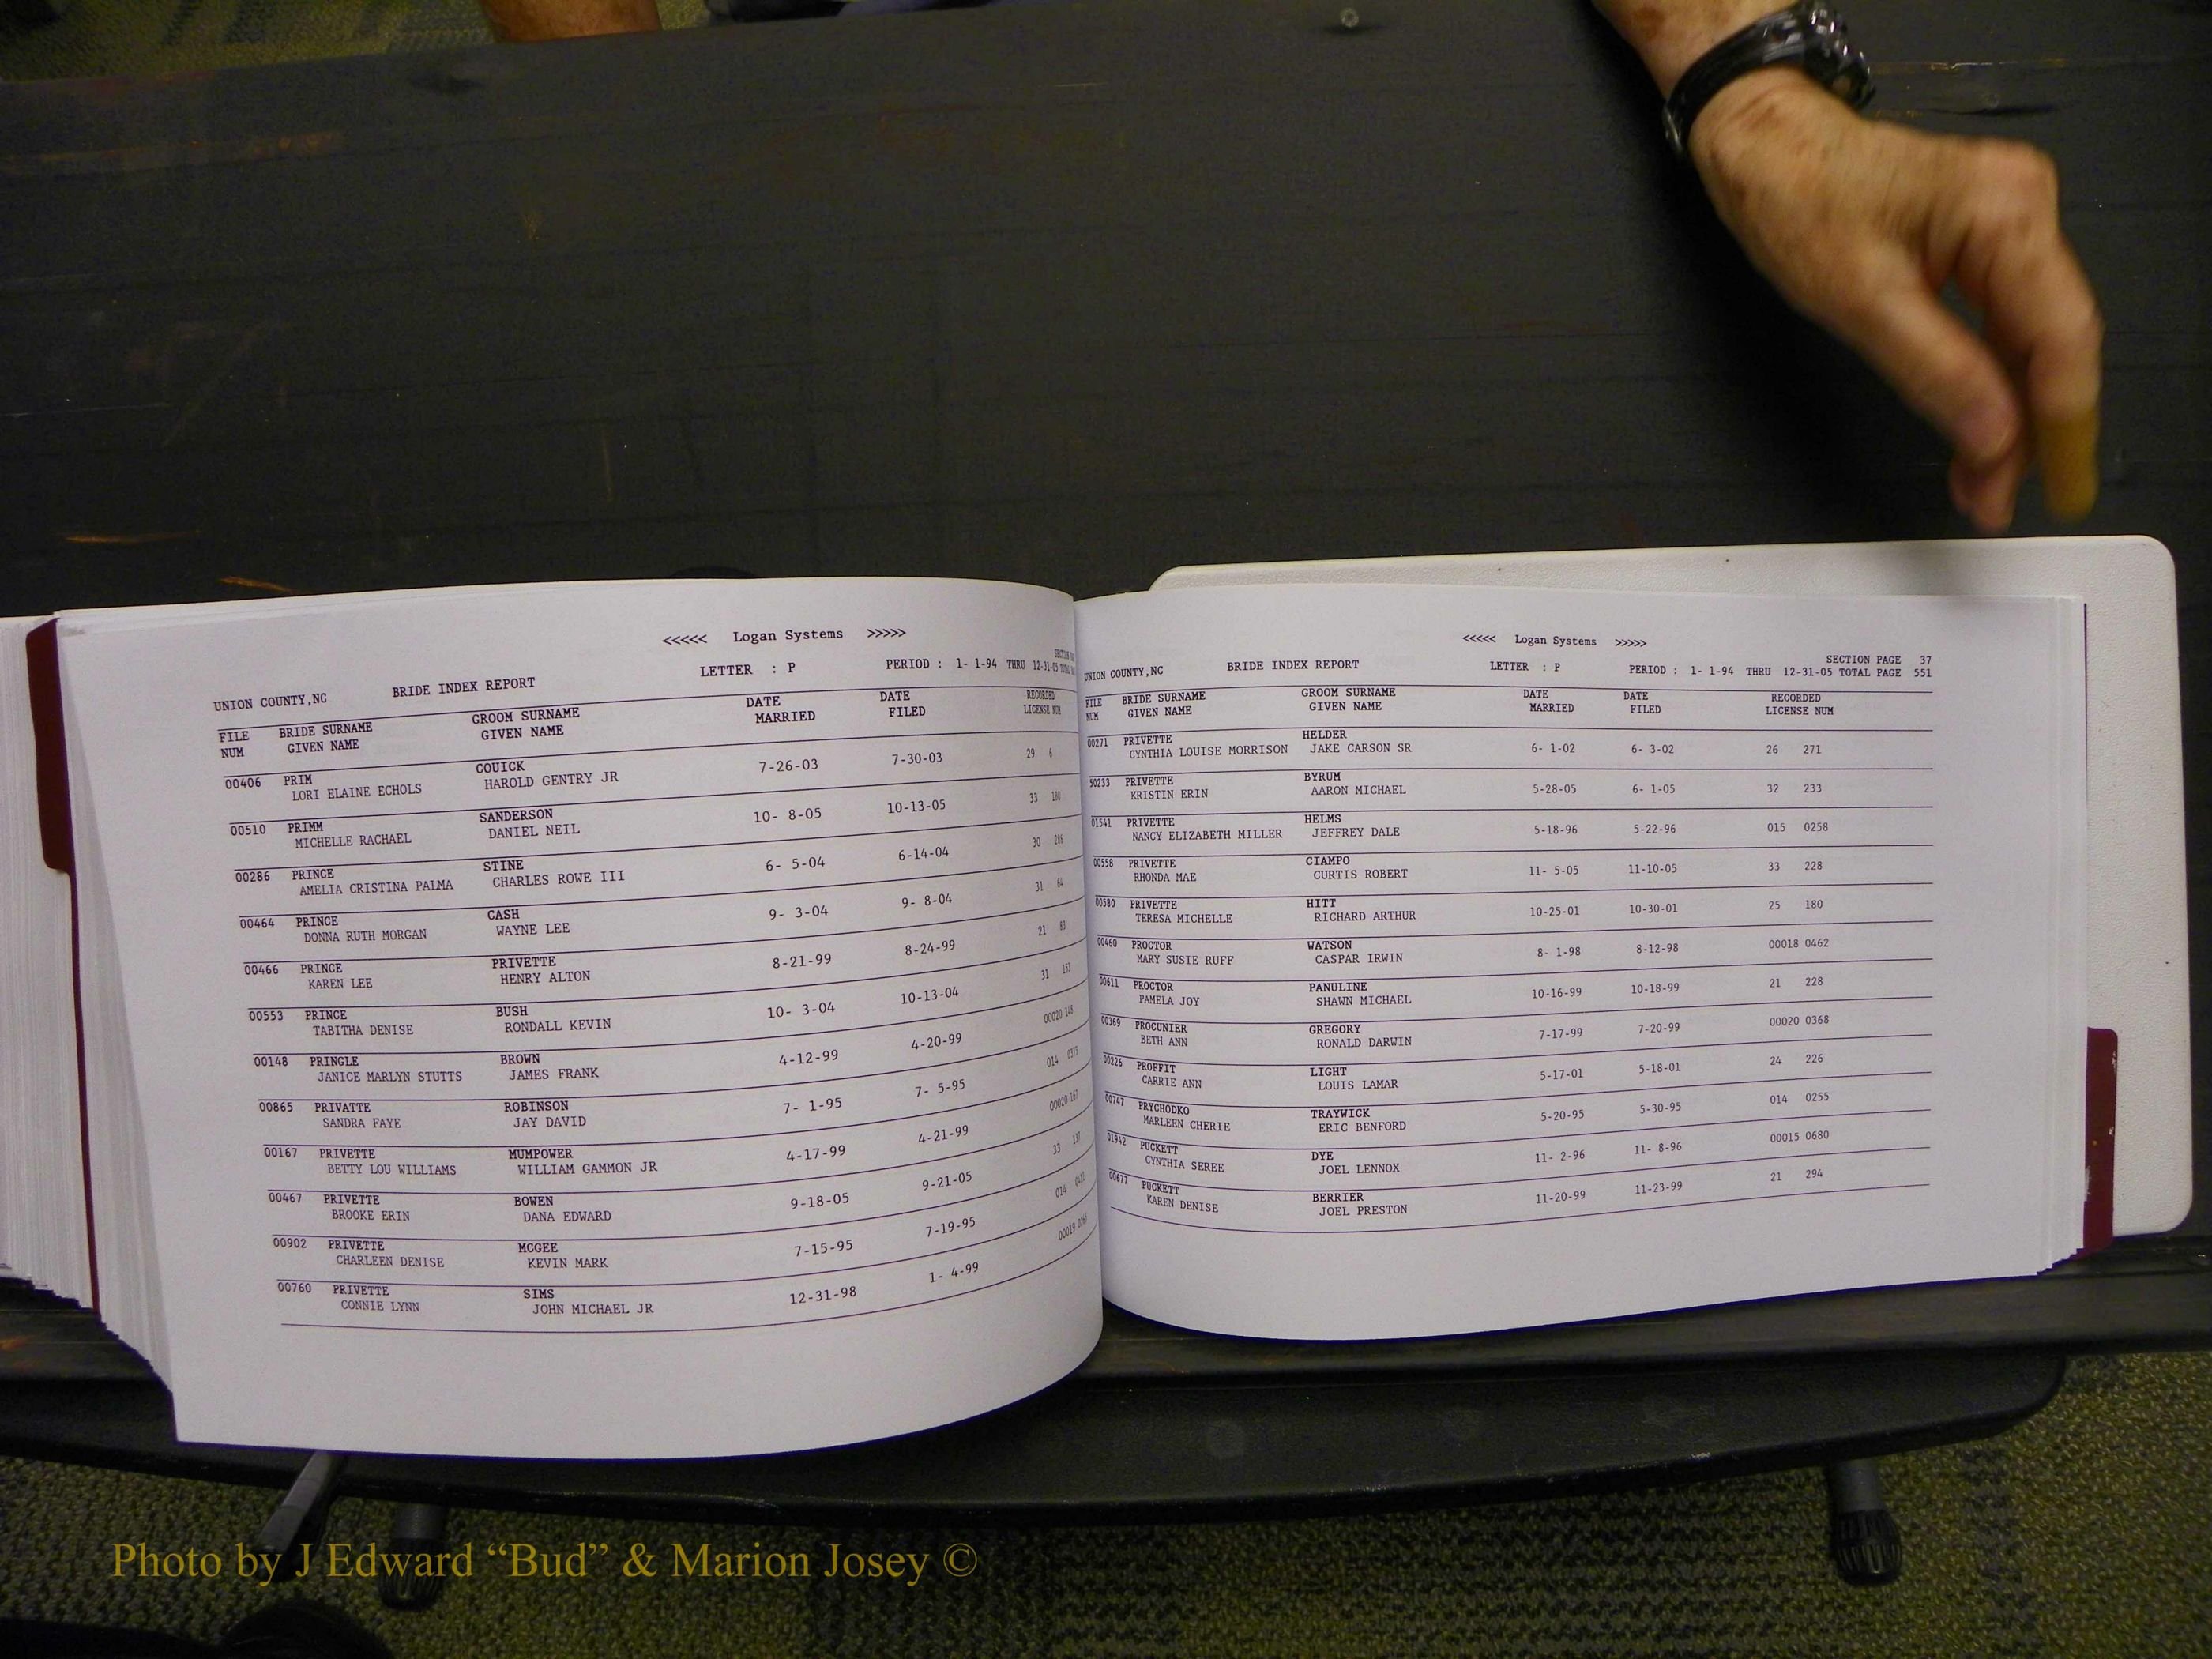 <<<<< Logan Systems >>>>>
UNION COUNTY,NC BRIDE INDEX REPORT LETTER : P PERIOD : 1- 1-94 THRU 12-31-05 TOTAL
FILE NUM BRIDE SURNAME GIVEN NAME GROOM SURNAME GIVEN NAME DATE MARRIED DATE FILED RECORDED LICENSE NUM
00406 PRIM COUICK 7-26-03 7-30-03 29 6
LORI ELAINE ECHOLS HAROLD GENTRY JR
00510 PRIMM SANDERSON 10- 8-05 10-13-05 33 180
MICHELLE RACHAEL DANIEL NEIL
00286 PRINCE STINE 6- 5-04 6-14-04 30 286
AMELIA CRISTINA PALMA CHARLES ROWE III
00464 PRINCE CASH 9- 3-04 9- 8-04 31 64
DONNA RUTH MORGAN WAYNE LEE
00466 PRINCE PRIVETTE 8-21-99 8-24-99 21 83
KAREN LEE HENRY ALTON
00553 PRINCE BUSH 10- 3-04 10-13-04 31 153
TABITHA DENISE RONDALL KEVIN
00148 PRINGLE BROWN 4-12-99 4-20-99 00020 148
JANICE MARLYN STUTTS JAMES FRANK
00865 PRIVATTE ROBINSON 7- 1-95 7- 5-95 014
SANDRA FAYE JAY DAVID
00167 PRIVETTE MUMPOWER 4-17-99 4-21-99 00020 167
BETTY LOU WILLIAMS WILLIAM GAMMON JR
00467 PRIVETTE BOWEN 9-18-05 9-21-05 33 137
BROOKE ERIN DANA EDWARD
00902 PRIVETTE MCGEE 7-15-95 7-19-95 014
CHARLEEN DENISE KEVIN MARK
00760 PRIVETTE SIMS 12-31-98 1- 4-99 00019
CONNIE LYNN JOHN MICHAEL JR
<<<<< Logan Systems >>>>>
SECTION PAGE 37
UNION COUNTY,NC BRIDE INDEX REPORT LETTER : P PERIOD : 1- 1-94 THRU 12-31-05 TOTAL PAGE 551
FILE NUM BRIDE SURNAME GIVEN NAME GROOM SURNAME GIVEN NAME DATE MARRIED DATE FILED RECORDED LICENSE NUM
00271 PRIVETTE HELDER 6- 1-02 6- 3-02 26 271
CYNTHIA LOUISE MORRISON JAKE CARSON SR
50233 PRIVETTE BYRUM 5-28-05 6- 1-05 32 233
KRISTIN ERIN AARON MICHAEL
01541 PRIVETTE HELMS 5-18-96 5-22-96 015 0258
NANCY ELIZABETH MILLER JEFFREY DALE
00558 PRIVETTE CIAMPO 11- 5-05 11-10-05 33 228
RHONDA MAE CURTIS ROBERT
00580 PRIVETTE HITT 10-25-01 10-30-01 25 180
TERESA MICHELLE RICHARD ARTHUR
00460 PROCTOR WATSON 8- 1-98 8-12-98 00018 0462
MARY SUSIE RUFF CASPAR IRWIN
00611 PROCTOR PANULINE 10-16-99 10-18-99 21 228
PAMELA JOY SHAWN MICHAEL
00369 PROCUNIER GREGORY 7-17-99 7-20-99 00020 0368
BETH ANN RONALD DARWIN
00226 PROFFIT LIGHT 5-17-01 5-18-01 24 226
CARRIE ANN LOUIS LAMAR
00747 PRYCHODKO TRAYWICK 5-20-95 5-30-95 014 0255
MARLEEN CHERIE ERIC BENFORD
01942 PUCKETT DYE 11- 2-96 11- 8-96 00015 0680
CYNTHIA SEREE JOEL LENNOX
00677 PUCKETT BERRIER 11-20-99 11-23-99 21 294
KAREN DENISE JOEL PRESTON
Photo by J Edward “Bud” & Marion Josey ©